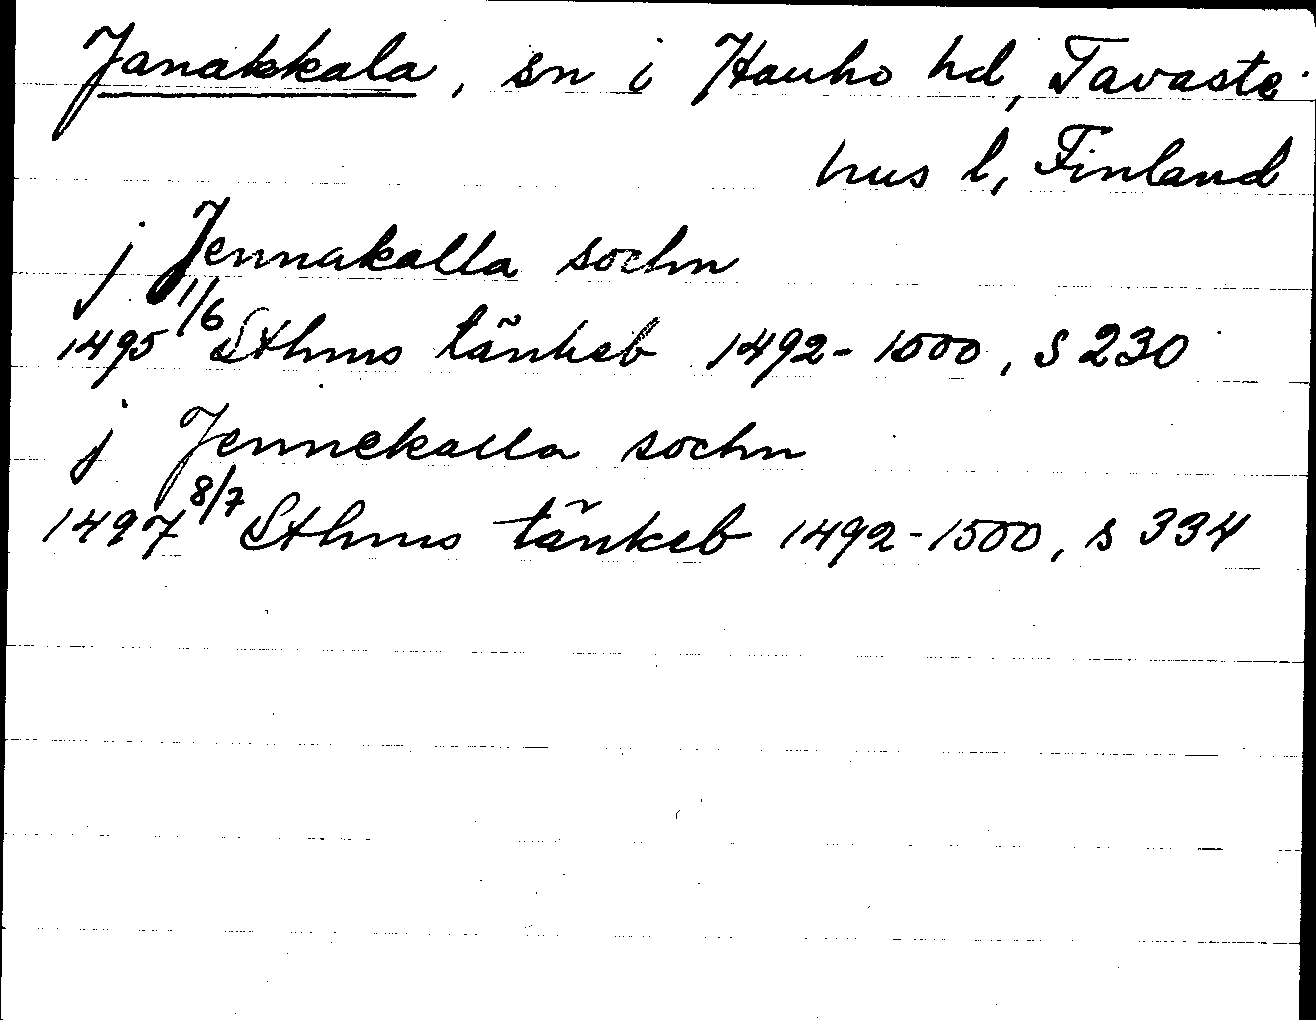 Janakkala, sn i Hauho hd, Tavaste-
hus l, Finland
j Jennakalla sochn
1495 1/6 Sthms tänkeb 1492-1500, s 230
j Jennekalla sochn
1497 8/7 Sthms tänkeb 1492-1500, s 334